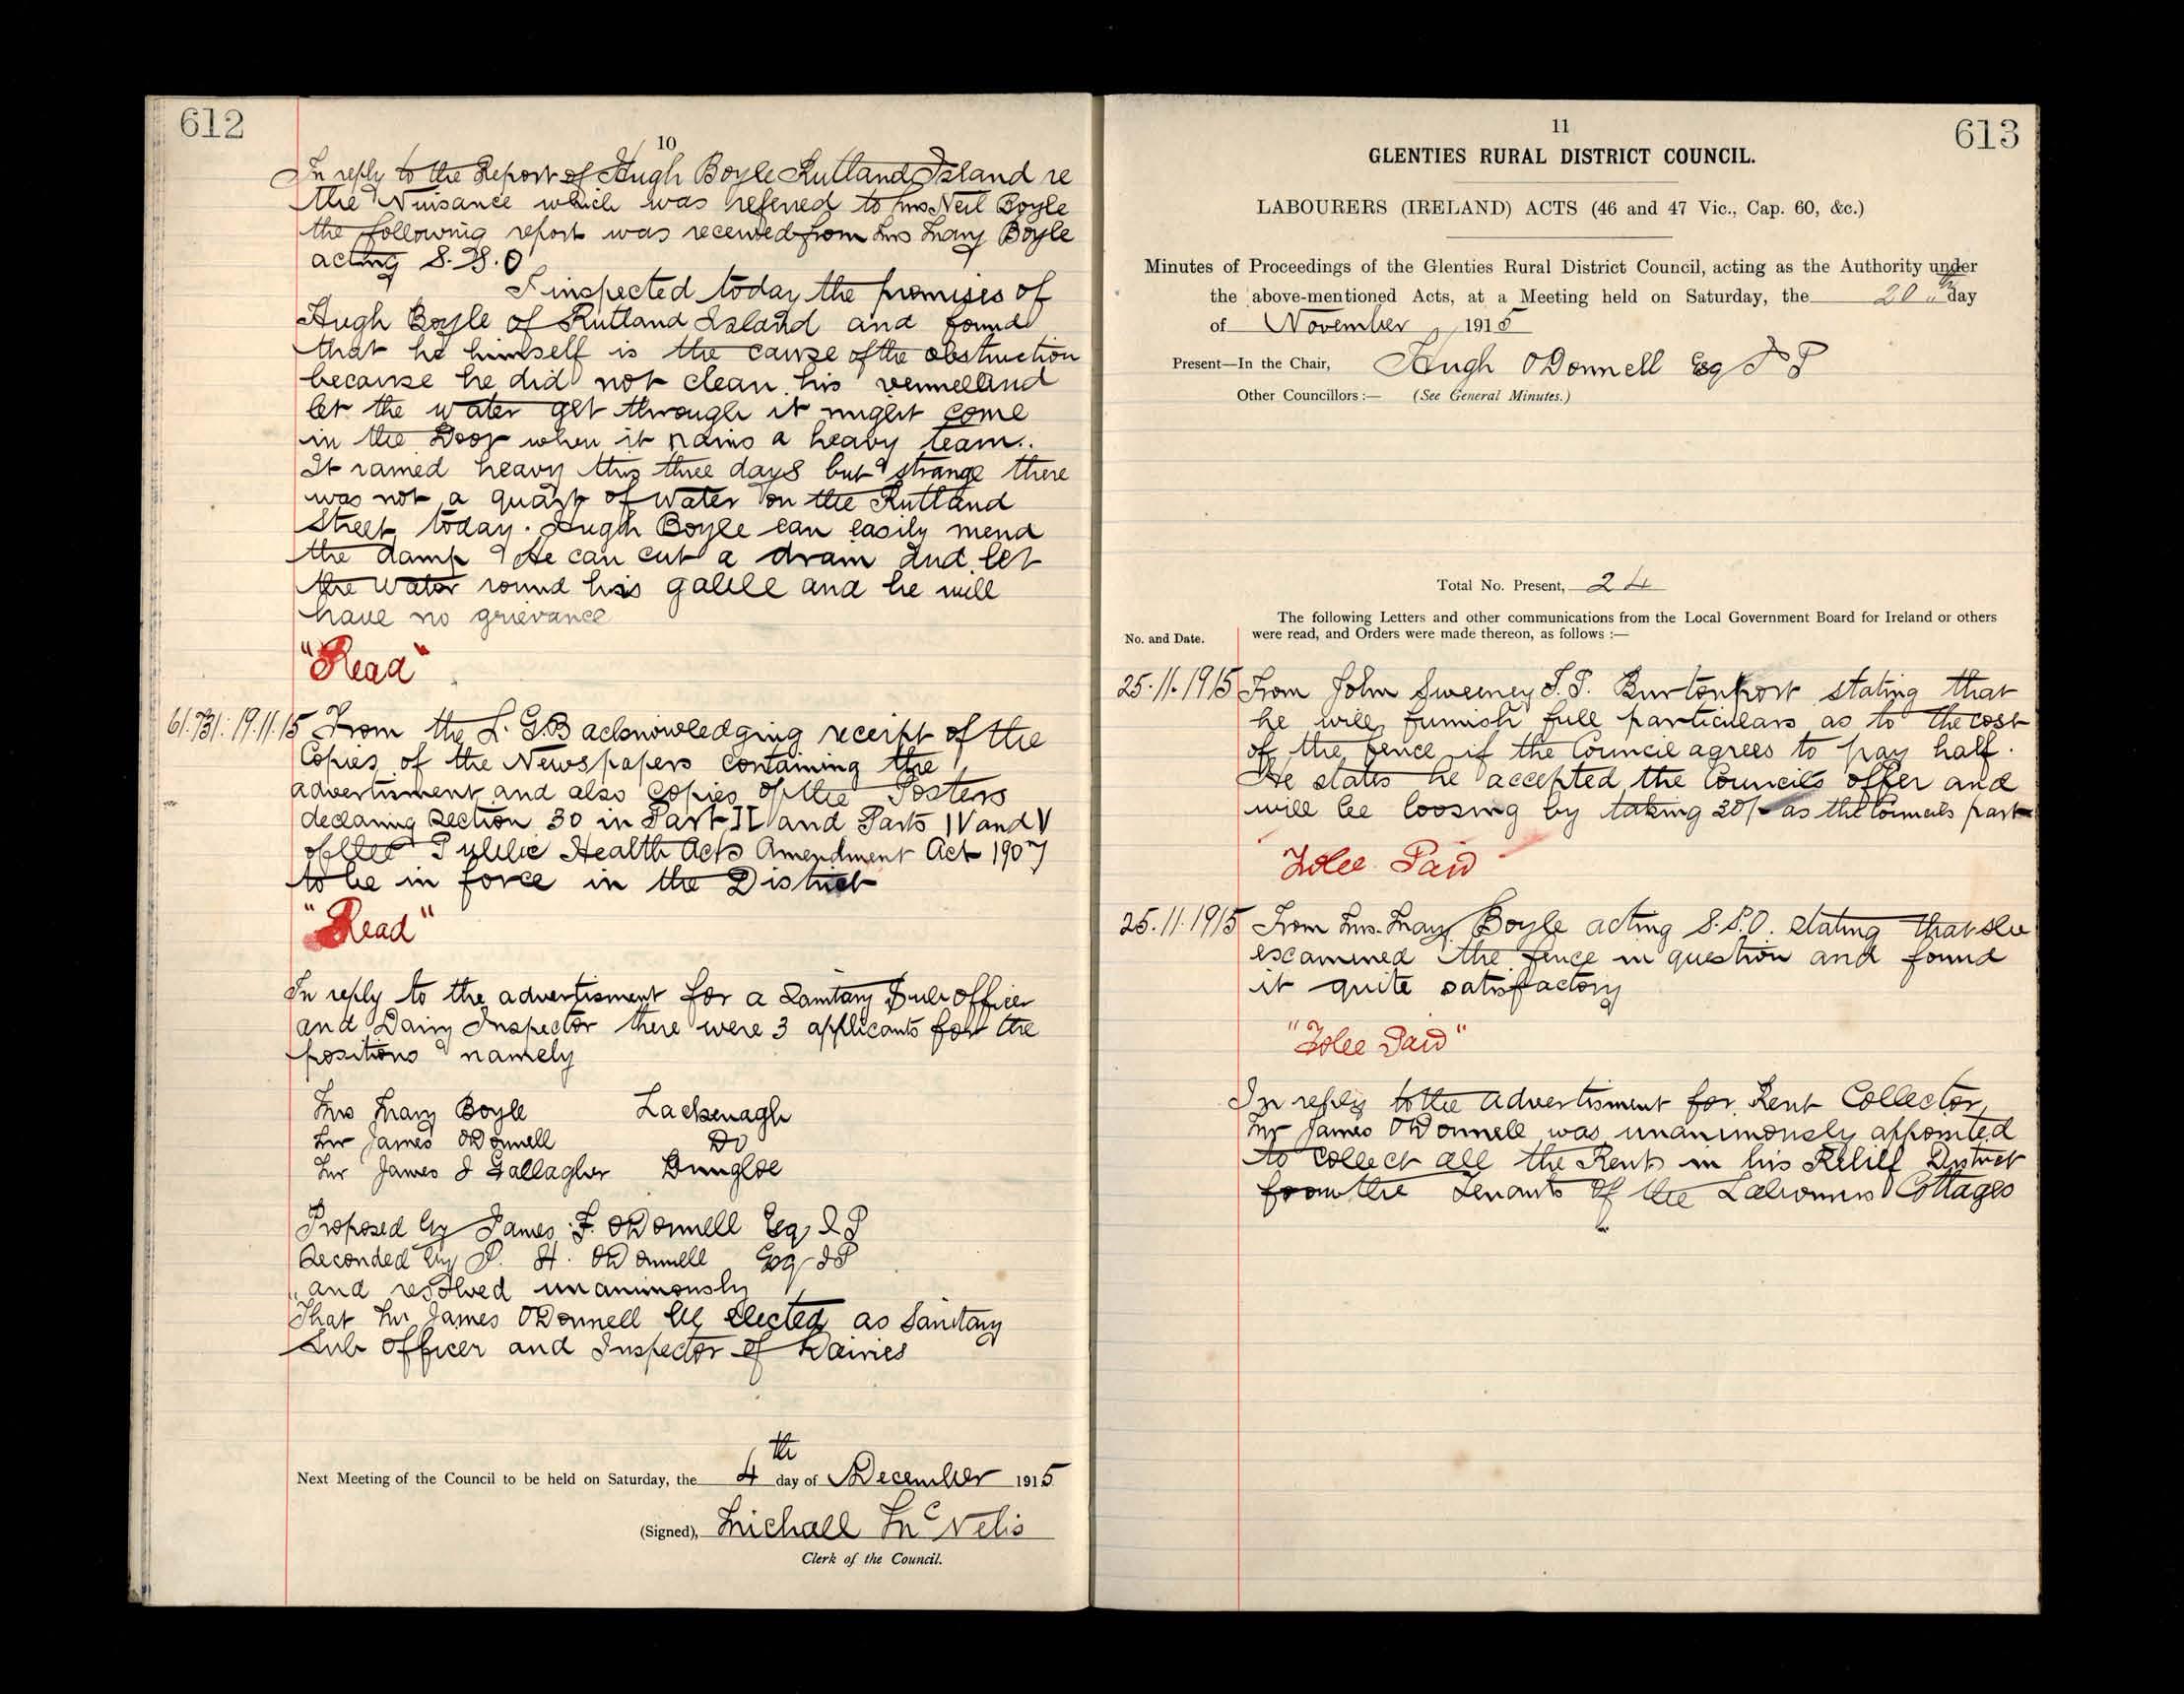 612
10
In reply to the Report of Hugh Boyle Rutland Island re
the Nuisance which was referred to Mrs Neil Boyle
the following report was received from Mrs Mary Boyle
acting S.S.O
I inspected today the premises of
Hugh Boyle of Rutland Island and found
that he himself is the cause of the obstruction
because he did not clean his vennel and
let the water get through it might come
in the Door when it rains a heavy team..
It rained heavy this three days but strange there
was not a quart of water on the Rutland
Street today. Hugh Boyle can easily mend
the damp He can cut a drain and let
the water round his gable and he will
have no grievance
"Read"
61.731: 19.11.15 From the L.G.B acknowledging receipt of the
Copies of the Newspapers containing the
advertisment and also Copies of the Posters
declaring Section 30 in Part II and Parts IV and V
of the Public Health Acts Amendment Act 1907
to be in force in the District
"Read"
In reply to the advertisment for a Sanitary Sub officer
and Dairy Inspector there were 3 applicants for the
positions namely
Mrs Mary Boyle Lackenagh
Mr James O'Donnell Do
Mr James J Gallagher Dungloe
Proposed by James F. O'Donnell Esq J P
Seconded by P. H. O'Donnell Esq J P
and resolved unanimously
"That Mr James O'Donnell be elected as Sanitary
Sub officer and Inspector of Dairies
Next Meeting of the Council to be held on Saturday, the 4th day of December 1915
(Signed), Michael McNelis
Clerk of the Council.
11
613
GLENTIES RURAL DISTRICT COUNCIL.
LABOURERS (IRELAND) ACTS (46 and 47 Vic., Cap. 60, &c.)
Minutes of Proceedings of the Glenties Rural District Council, acting as the Authority under
the above-mentioned Acts, at a Meeting held on Saturday, the 20th day
of November, 1915
Present—In the Chair, Hugh O'Donnell Esq J P
Other Councillors:— (See General Minutes.)
Total No. Present, 24
The following Letters and other communications from the Local Government Board for Ireland or others
No. and Date. were read, and Orders were made thereon, as follows:—
25.11.1915 From John Sweeney J.P. Burtonport stating that
he will furnish full particulars as to the cost
of the fence if the Council agrees to pay half.
He states he accepted the Councils offer and
will be loosing by taking 30/- as the Councils part
To be Paid
25.11.1915 From Mrs. Mary Boyle acting S.S.O. stating that she
escamined the fence in question and found
it quite satisfactory
"To be Paid"
In reply to the advertisment for Rent Collector
Mr James O'Donnell was unanimously appointed
to collect all the Rents in his Relief District
from the Tenants of the Labourers Cottages